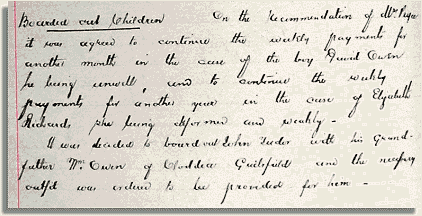 Boarded out Children On the recommendation of Mr
it was agreed to continue the weekly payments for
another month in the case of the boy David Owen
he being unwell, and to continue the weekly
payments for another year in the case of Elizabeth
Richards she being deformed and weakly -
It was decided to board out John Tudor with his Grand-
father Wm. Owen of Guilsfield and the necessary
outfit was ordered to be provided for him -